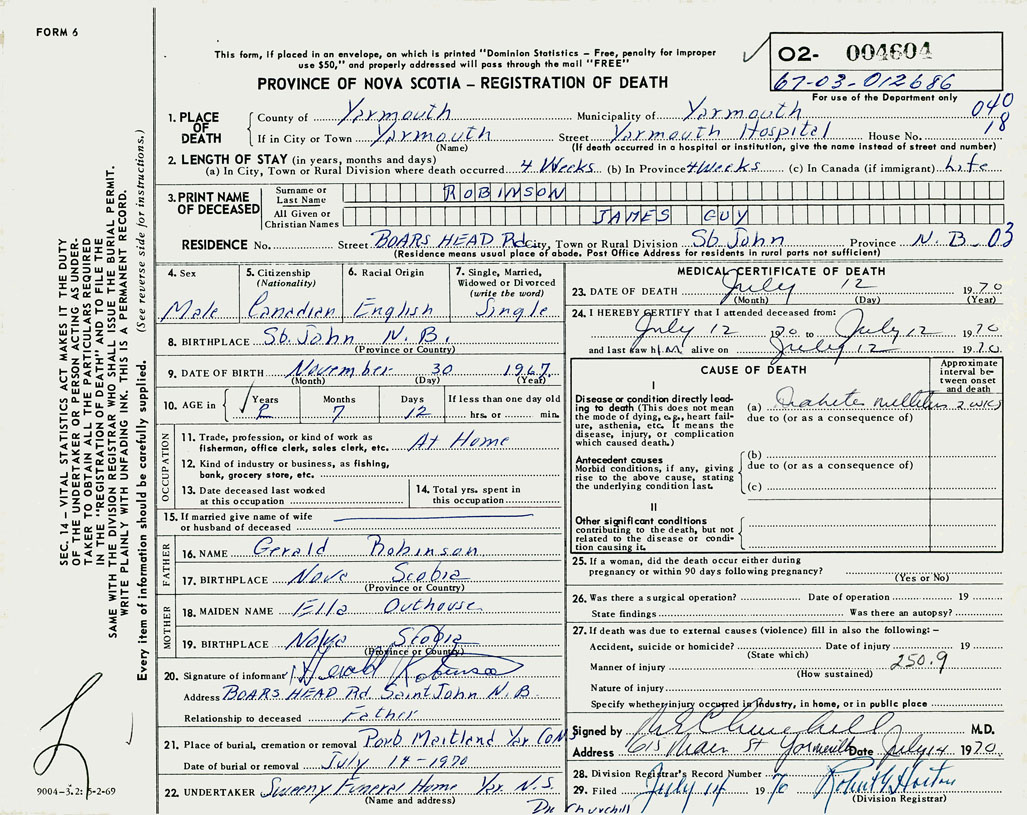 FORM 6
This form, if placed in an envelope, on which is printed "Dominion Statistics – Free, penalty for improper
use $50," and properly addressed will pass through the mail "FREE"
PROVINCE OF NOVA SCOTIA – REGISTRATION OF DEATH
02- 004604
67-03-012686
For use of the Department only
040
18
1. PLACE OF DEATH
County of Yarmouth Municipality of Yarmouth
If in City or Town Yarmouth Street Yarmouth Hospital House No.
(Name) (If death occurred in a hospital or institution, give the name instead of street and number)
2. LENGTH OF STAY (in years, months and days)
(a) In City, Town or Rural Division where death occurred 4 Weeks (b) In Province 4 Weeks (c) In Canada (if immigrant) Life
3. PRINT NAME OF DECEASED
Surname or Last Name ROBINSON
All Given or Christian Names JAMES GUY
RESIDENCE No. Street BOARS HEAD Rd City, Town or Rural Division St. John Province N.B. 03
(Residence means usual place of abode. Post Office Address for residents in rural parts not sufficient)
4. Sex
Male
5. Citizenship
(Nationality)
Canadian
6. Racial Origin
English
7. Single, Married,
Widowed or Divorced
(write the word)
Single
8. BIRTHPLACE St. John N.B.
(Province or Country)
9. DATE OF BIRTH November 30 1967
(Month) (Day) (Year)
10. AGE in
Years Months Days If less than one day old
2 7 12 hrs. or min.
OCCUPATION
11. Trade, profession, or kind of work as
fisherman, office clerk, sales clerk, etc. At Home
12. Kind of industry or business, as fishing,
bank, grocery store, etc.
13. Date deceased last worked
at this occupation
14. Total yrs. spent in
this occupation
15. If married give name of wife
or husband of deceased
FATHER
16. NAME Gerald Robinson
17. BIRTHPLACE Nova Scotia
(Province or Country)
MOTHER
18. MAIDEN NAME Ella Outhouse
19. BIRTHPLACE Nova Scotia
(Province or Country)
20. Signature of informant Robinson
Address BOARS HEAD Rd Saint John N.B
Relationship to deceased Father
21. Place of burial, cremation or removal Port Maitland Yar Com
Date of burial or removal July 14-1970
22. UNDERTAKER Sweeny Funeral Home Yar N.S.
(Name and address)
Dr Churchill
MEDICAL CERTIFICATE OF DEATH
23. DATE OF DEATH July 12 1970
(Month) (Day) (Year)
24. I HEREBY CERTIFY that I attended deceased from:
July 12 1970 to July 12 1970
and last saw him alive on July 12 1970
CAUSE OF DEATH
Approximate
interval be-
tween onset
and death
I
Disease or condition directly lead-
ing to death (This does not mean
the mode of dying, e.g., heart fail-
ure, asthenia, etc. It means the
disease, injury, or complication
which caused death.)
(a) Diabetes mellitus 2 wks
due to (or as a consequence of)
Antecedent causes
Morbid conditions, if any, giving
rise to the above cause, stating
the underlying condition last.
(b)
due to (or as a consequence of)
(c)
II
Other significant conditions
contributing to the death, but not
related to the disease or condi-
tion causing it.
25. If a woman, did the death occur either during
pregnancy or within 90 days following pregnancy?
(Yes or No)
26. Was there a surgical operation? Date of operation 19
State findings Was there an autopsy?
27. If death was due to external causes (violence) fill in also the following: –
Accident, suicide or homicide? Date of injury 19
(State which)
Manner of injury 250.9
(How sustained)
Nature of injury
Specify whether injury occurred in industry, in home, or in public place
Signed by Churchill M.D.
Address 615 Main St Yarmouth Date July 14 1970
28. Division Registrar's Record Number
29. Filed July 14 1970 Robert G. Horton
(Division Registrar)
SEC. 14 – VITAL STATISTICS ACT MAKES IT THE DUTY
OF THE UNDERTAKER OR PERSON ACTING AS UNDER-
TAKER TO OBTAIN ALL THE PARTICULARS REQUIRED
IN THE "REGISTRATION OF DEATH" AND TO FILE THE
SAME WITH THE DIVISION REGISTRAR WHO SHALL ISSUE THE BURIAL PERMIT.
WRITE PLAINLY WITH UNFADING INK. THIS IS A PERMANENT RECORD.
Every item of information should be carefully supplied. (See reverse side for instructions.)
9004-3.2: 5-2-69